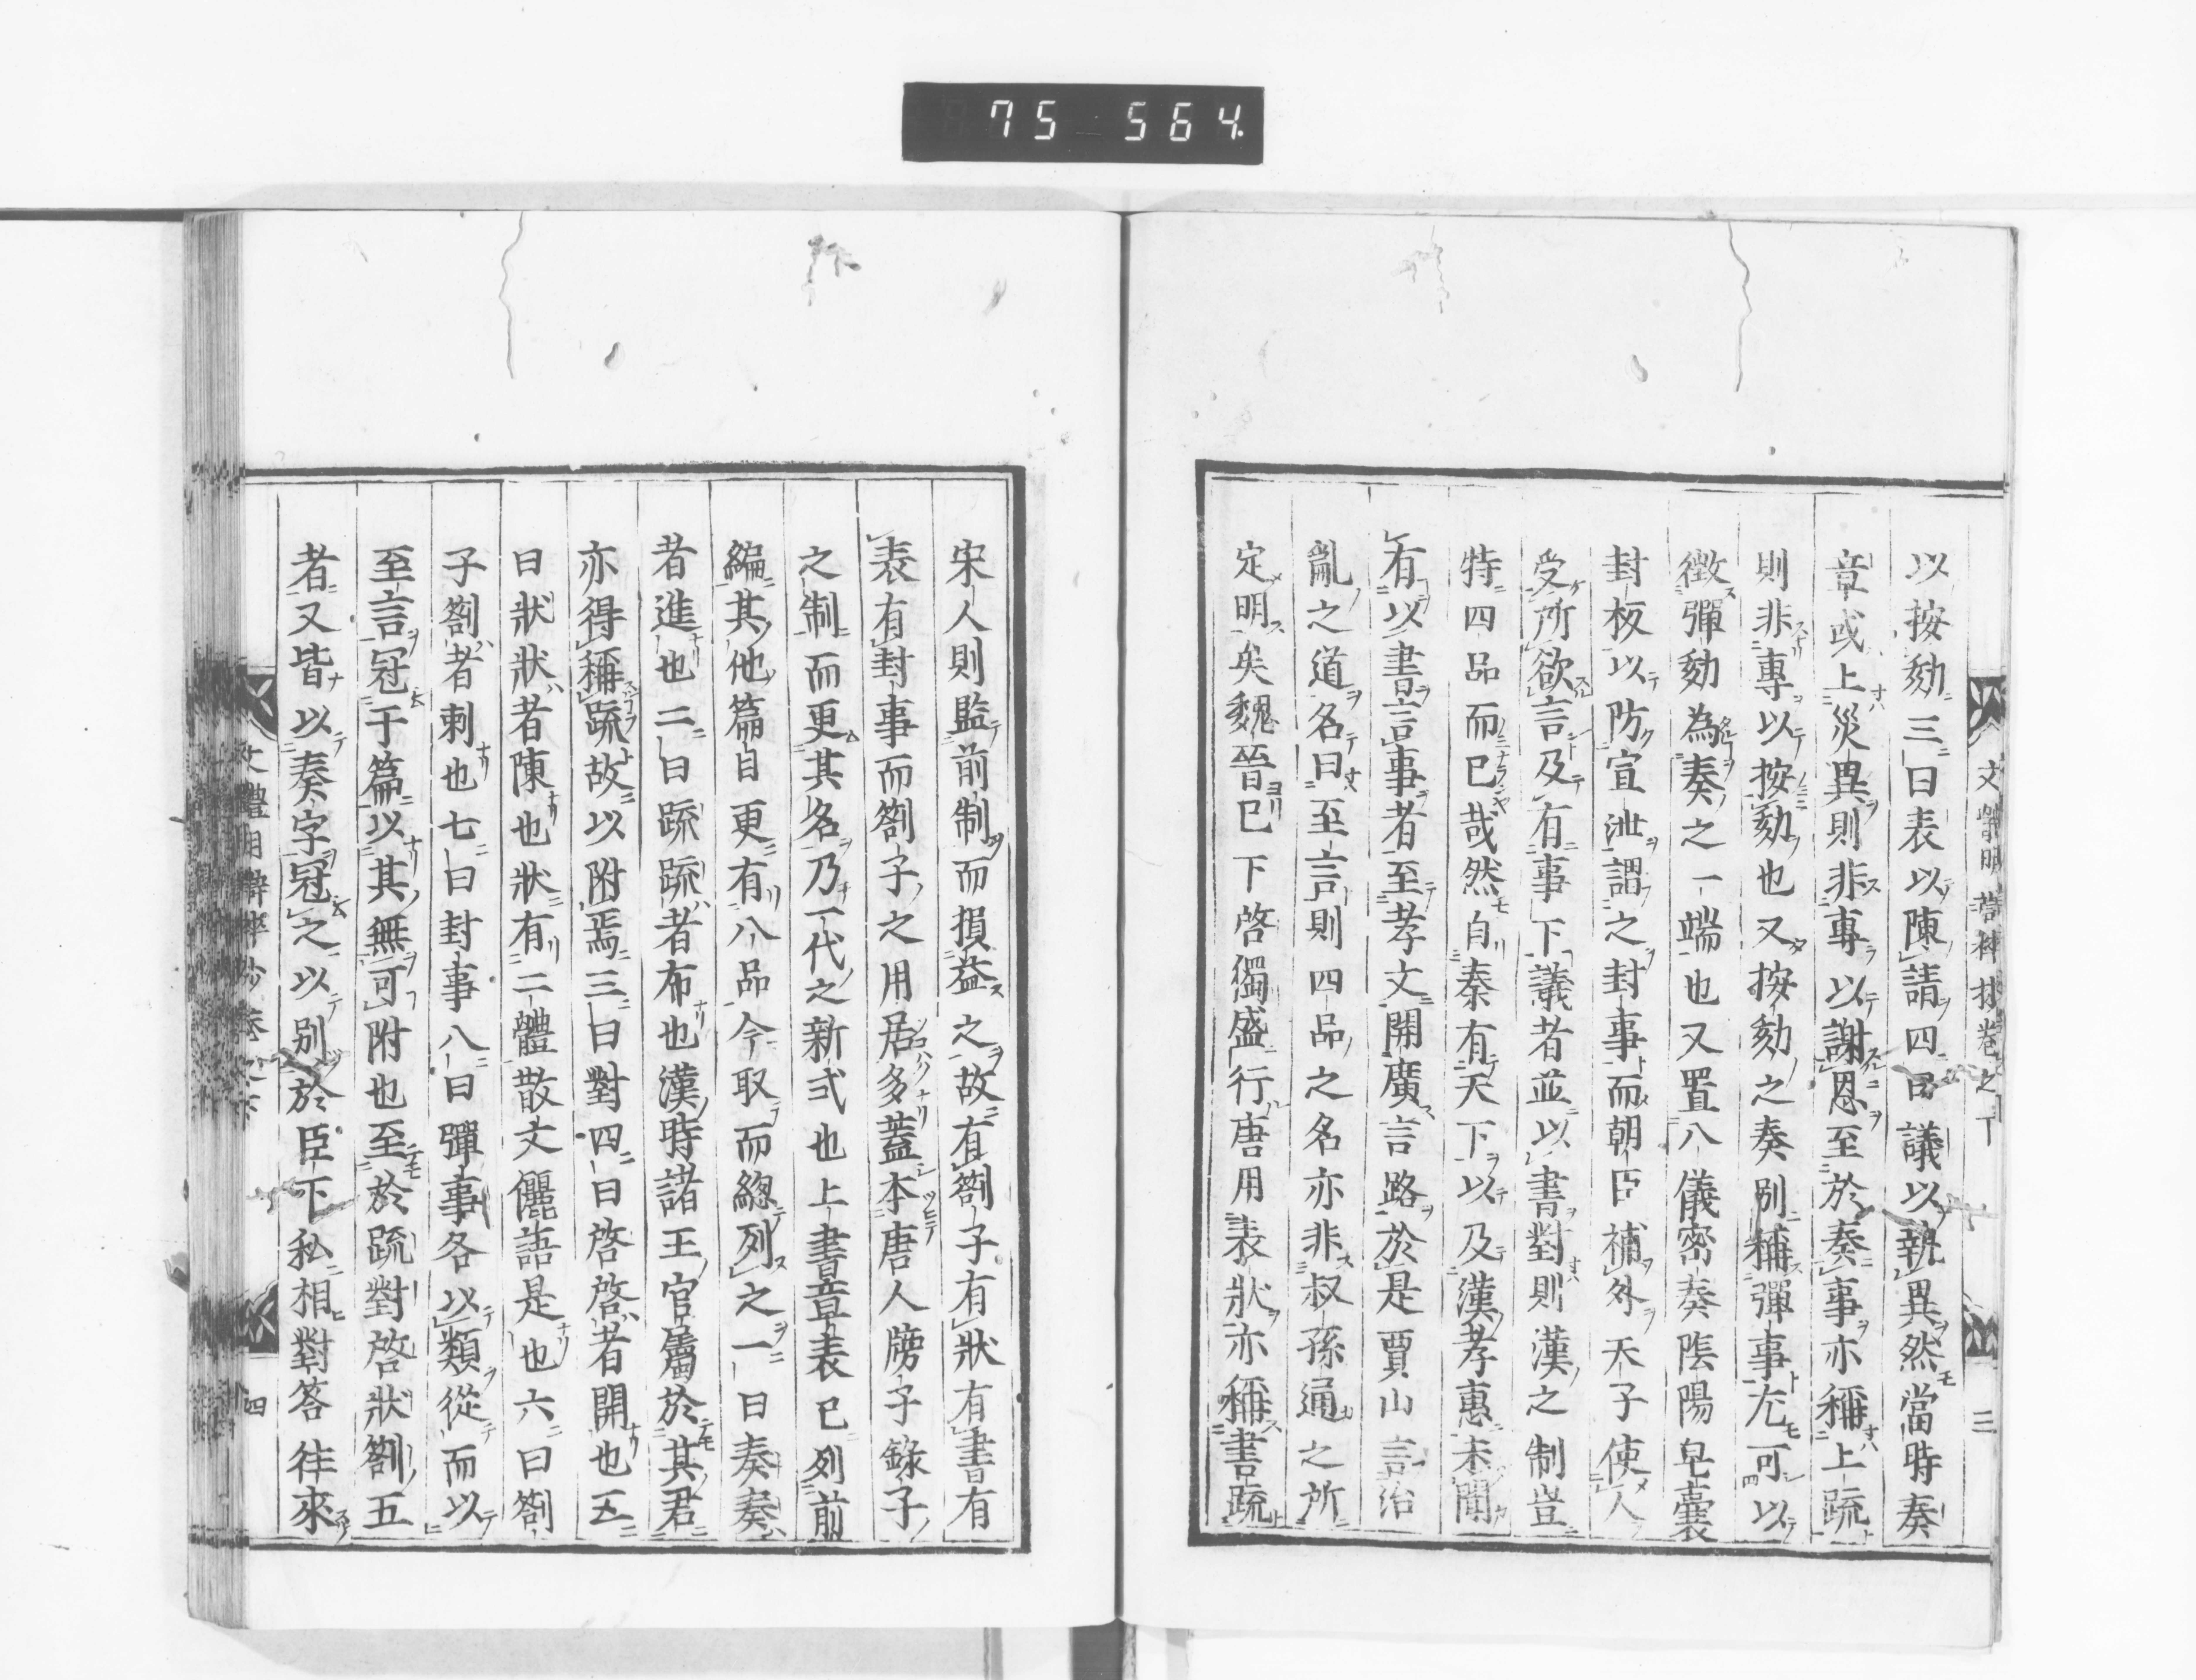 75 564.
以按劾三曰表以陳請四曰議以執異然當時奏
章或上災異則非專以謝恩至於奏事亦稱上疏
則非專以按劾也又按劾之奏別稱彈事尤可以
徵彈劾為奏之一端也又置八儀密奏陰陽皂囊
封板以防宣泄謂之封事而朝臣補外天子使人
受所欲言及有事下議者並以書對則漢之制豈
特四品而已哉然自秦有天下以及漢孝惠未聞
有以書言事者至孝文開廣言路於是賈山言治
亂之道名曰至言則四品之名亦非叔孫通之所
定明矣魏晉已下啓獨盛行唐用表狀亦稱書疏
宋人則監前制而損益之故有劄子有狀有書有
表有封事而劄子之用居多蓋本唐人牓子錄子
之制而更其名乃一代之新式也上書章表已列前
編其他篇目更有八品今取而總列之一曰奏奏
者進也二曰疏疏者布也漢時諸王官屬於其君
亦得稱疏故以附焉三曰對四曰啓啓者開也五
曰狀狀者陳也狀有二體散文儷語是也六曰劄
子劄者剌也七曰封事八曰彈事各以類從而以
至言冠于篇以其無可附也至於疏對啓狀劄五
者又皆以奏字冠之以別於臣下私相對答往來
四